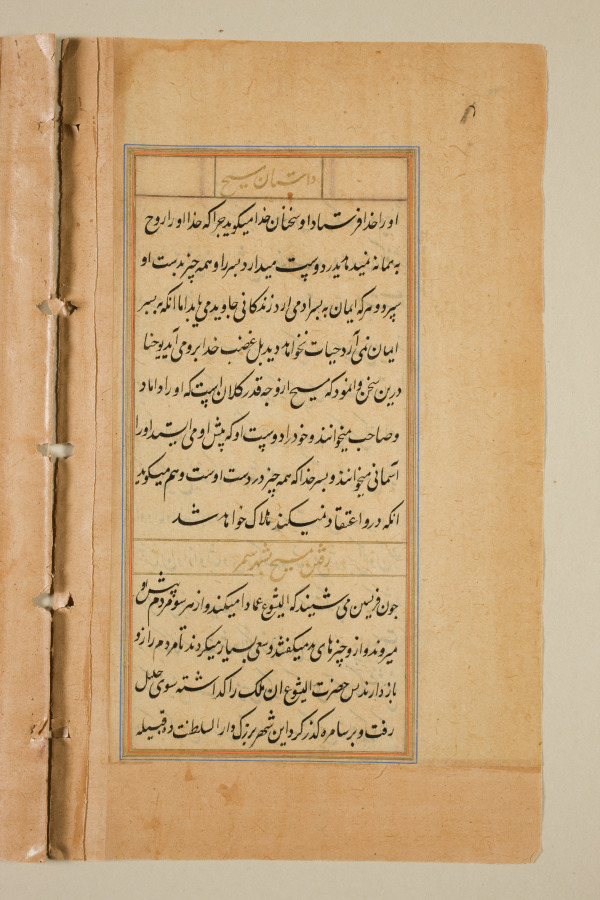 داستان مسیح
او را خدا فرستاد او سخنان خدا میکوید جرا که خدا او را روح
به بمانه نمیدهد میدر دوست میدارد بسر را و همه چیز بدست او
سپرد و هر که ایمان به بسر ادمی ارد زندکانی جاوید می یابد اما انکه بر بسر
ایمان نمی آرد حیات نخواهد دید بل غضب خدا برو می آید یوحنا
درین سخن وانمود که مسیح از وجه قدر کلان است که او را داماد
و صاحب میخوانند و خود را دوست او که پیش او می ایستد او را
آسمانی میخوانند و بسر خدا که همه چیز در دست اوست و هم میکوید
انکه درو اعتقاد نمیکند هلاک خواهد شد
رفتن مسیح بشهر سمر
جون فریسین می شنیدند که الیشوع عماد میکند و از هر سو مردم پیش او
میروند و از و چیزهای میکفتند و سعی بسیار میکردند تا مردم را از و
باز دارند بس حضرت الیشوع ان ملک را کذاشته سوی جلیل
رفت و بر سامره کذر کرد این شهر بزرک دار السلطنت ده قبیله